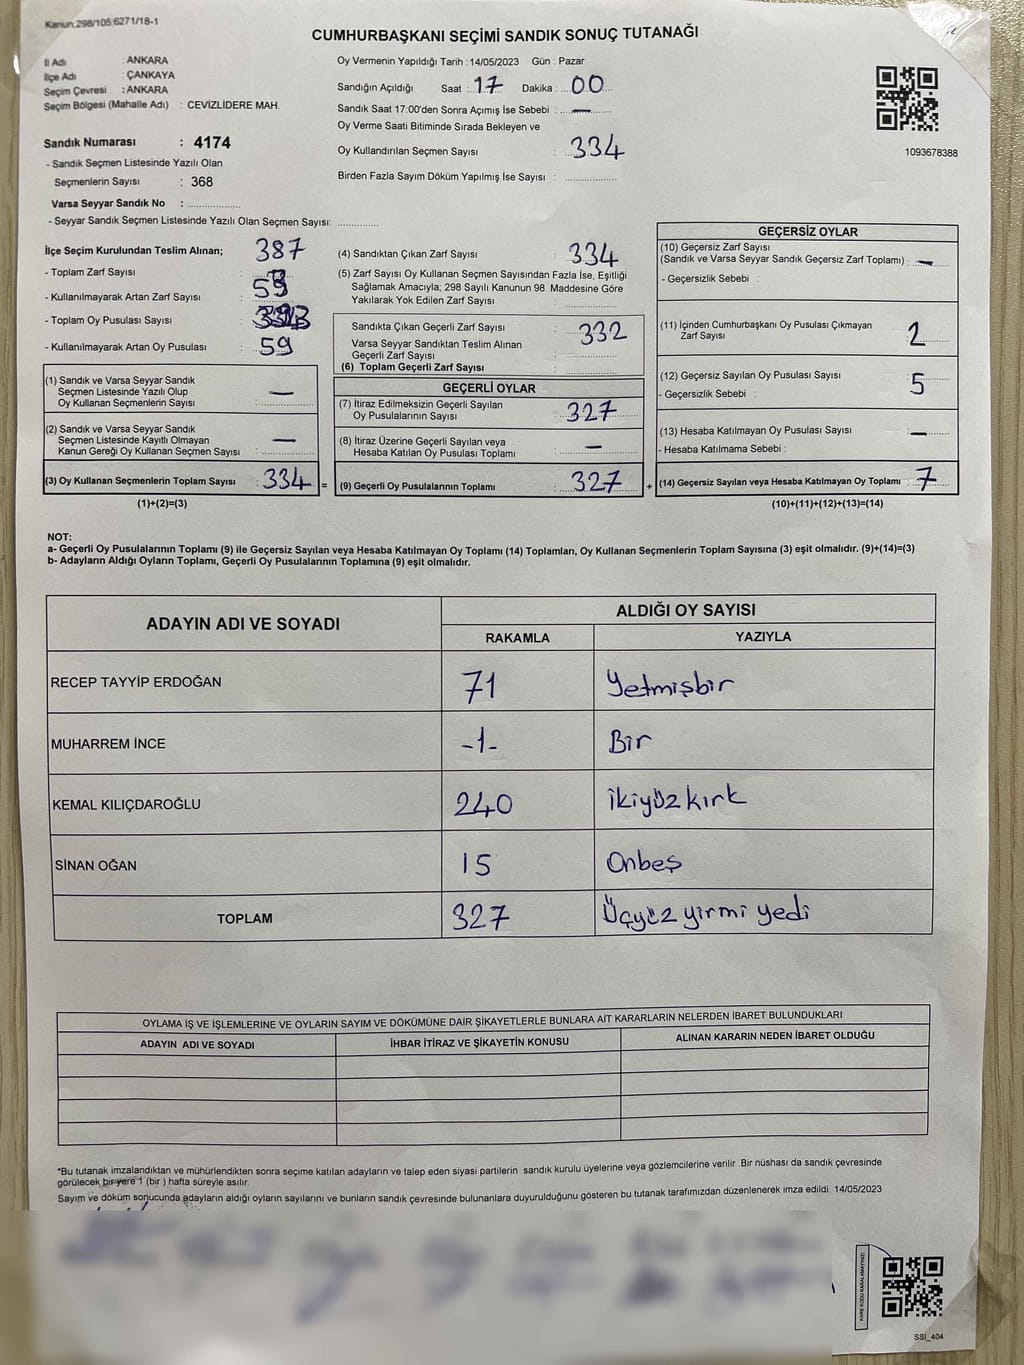 Kanun:298/105;6271/18-1
CUMHURBAŞKANI SEÇİMİ SANDIK SONUÇ TUTANAĞI
İl Adı : ANKARA
İlçe Adı : ÇANKAYA
Seçim Çevresi : ANKARA
Seçim Bölgesi (Mahalle Adı) : CEVİZLİDERE MAH.
Sandık Numarası : 4174
- Sandık Seçmen Listesinde Yazılı Olan
Seçmenlerin Sayısı : 368
Varsa Seyyar Sandık No : ................
- Seyyar Sandık Seçmen Listesinde Yazılı Olan Seçmen Sayısı: ............
Oy Vermenin Yapıldığı Tarih : 14/05/2023 Gün : Pazar
Sandığın Açıldığı Saat : 17 Dakika : 00
Sandık Saat 17:00'den Sonra Açımış İse Sebebi : —
Oy Verme Saati Bitiminde Sırada Bekleyen ve
Oy Kullandırılan Seçmen Sayısı : 334
Birden Fazla Sayım Döküm Yapılmış İse Sayısı : ................
1093678388
İlçe Seçim Kurulundan Teslim Alınan;
- Toplam Zarf Sayısı : 387
- Kullanılmayarak Artan Zarf Sayısı :
- Toplam Oy Pusulası Sayısı :
- Kullanılmayarak Artan Oy Pusulası : 59
(1) Sandık ve Varsa Seyyar Sandık
Seçmen Listesinde Yazılı Olup
Oy Kullanan Seçmenlerin Sayısı : —
(2) Sandık ve Varsa Seyyar Sandık
Seçmen Listesinde Kayıtlı Olmayan
Kanun Gereği Oy Kullanan Seçmen Sayısı : —
(3) Oy Kullanan Seçmenlerin Toplam Sayısı : 334 =
(1)+(2)=(3)
(4) Sandıktan Çıkan Zarf Sayısı : 334
(5) Zarf Sayısı Oy Kullanan Seçmen Sayısından Fazla İse, Eşitliği
Sağlamak Amacıyla; 298 Sayılı Kanunun 98. Maddesine Göre
Yakılarak Yok Edilen Zarf Sayısı : ................
Sandıkta Çıkan Geçerli Zarf Sayısı : 332
Varsa Seyyar Sandıktan Teslim Alınan
Geçerli Zarf Sayısı : ................
(6) Toplam Geçerli Zarf Sayısı : ................
GEÇERLİ OYLAR
(7) İtiraz Edilmeksizin Geçerli Sayılan
Oy Pusulalarının Sayısı : 327
(8) İtiraz Üzerine Geçerli Sayılan veya
Hesaba Katılan Oy Pusulası Toplamı : —
(9) Geçerli Oy Pusulalarının Toplamı : 327 +
GEÇERSİZ OYLAR
(10) Geçersiz Zarf Sayısı
(Sandık ve Varsa Seyyar Sandık Geçersiz Zarf Toplamı) : —
- Geçersizlik Sebebi :
(11) İçinden Cumhurbaşkanı Oy Pusulası Çıkmayan
Zarf Sayısı : 2
(12) Geçersiz Sayılan Oy Pusulası Sayısı : 5
- Geçersizlik Sebebi :
(13) Hesaba Katılmayan Oy Pusulası Sayısı : —
- Hesaba Katılmama Sebebi :
(14) Geçersiz Sayılan veya Hesaba Katılmayan Oy Toplamı : 7
(10)+(11)+(12)+(13)=(14)
NOT:
a- Geçerli Oy Pusulalarının Toplamı (9) ile Geçersiz Sayılan veya Hesaba Katılmayan Oy Toplamı (14) Toplamları, Oy Kullanan Seçmenlerin Toplam Sayısına (3) eşit olmalıdır. (9)+(14)=(3)
b- Adayların Aldığı Oyların Toplamı, Geçerli Oy Pusulalarının Toplamına (9) eşit olmalıdır.
ADAYIN ADI VE SOYADI ALDIĞI OY SAYISI
RAKAMLA YAZIYLA
RECEP TAYYİP ERDOĞAN 71 Yetmişbir
MUHARREM İNCE -1- Bir
KEMAL KILIÇDAROĞLU 240 İkiyüz kırk
SİNAN OĞAN 15 Onbeş
TOPLAM 327 Üçyüz yirmi yedi
OYLAMA İŞ VE İŞLEMLERİNE VE OYLARIN SAYIM VE DÖKÜMÜNE DAİR ŞİKAYETLERLE BUNLARA AİT KARARLARIN NELERDEN İBARET BULUNDUKLARI
ADAYIN ADI VE SOYADI İHBAR İTİRAZ VE ŞİKAYETİN KONUSU ALINAN KARARIN NEDEN İBARET OLDUĞU
*Bu tutanak imzalandıktan ve mühürlendikten sonra seçime katılan adayların ve talep eden siyasi partilerin sandık kurulu üyelerine veya gözlemcilerine verilir Bir nüshası da sandık çevresinde
görülecek bir yere 1 (bir ) hafta süreyle asılır.
Sayım ve döküm sonucunda adayların aldığı oyların sayılarını ve bunların sandık çevresinde bulunanlara duyurulduğunu gösteren bu tutanak tarafımızdan düzenlenerek imza edildi. 14/05/2023
KARE KODU KARALAMAYINIZ!
SSİ_404